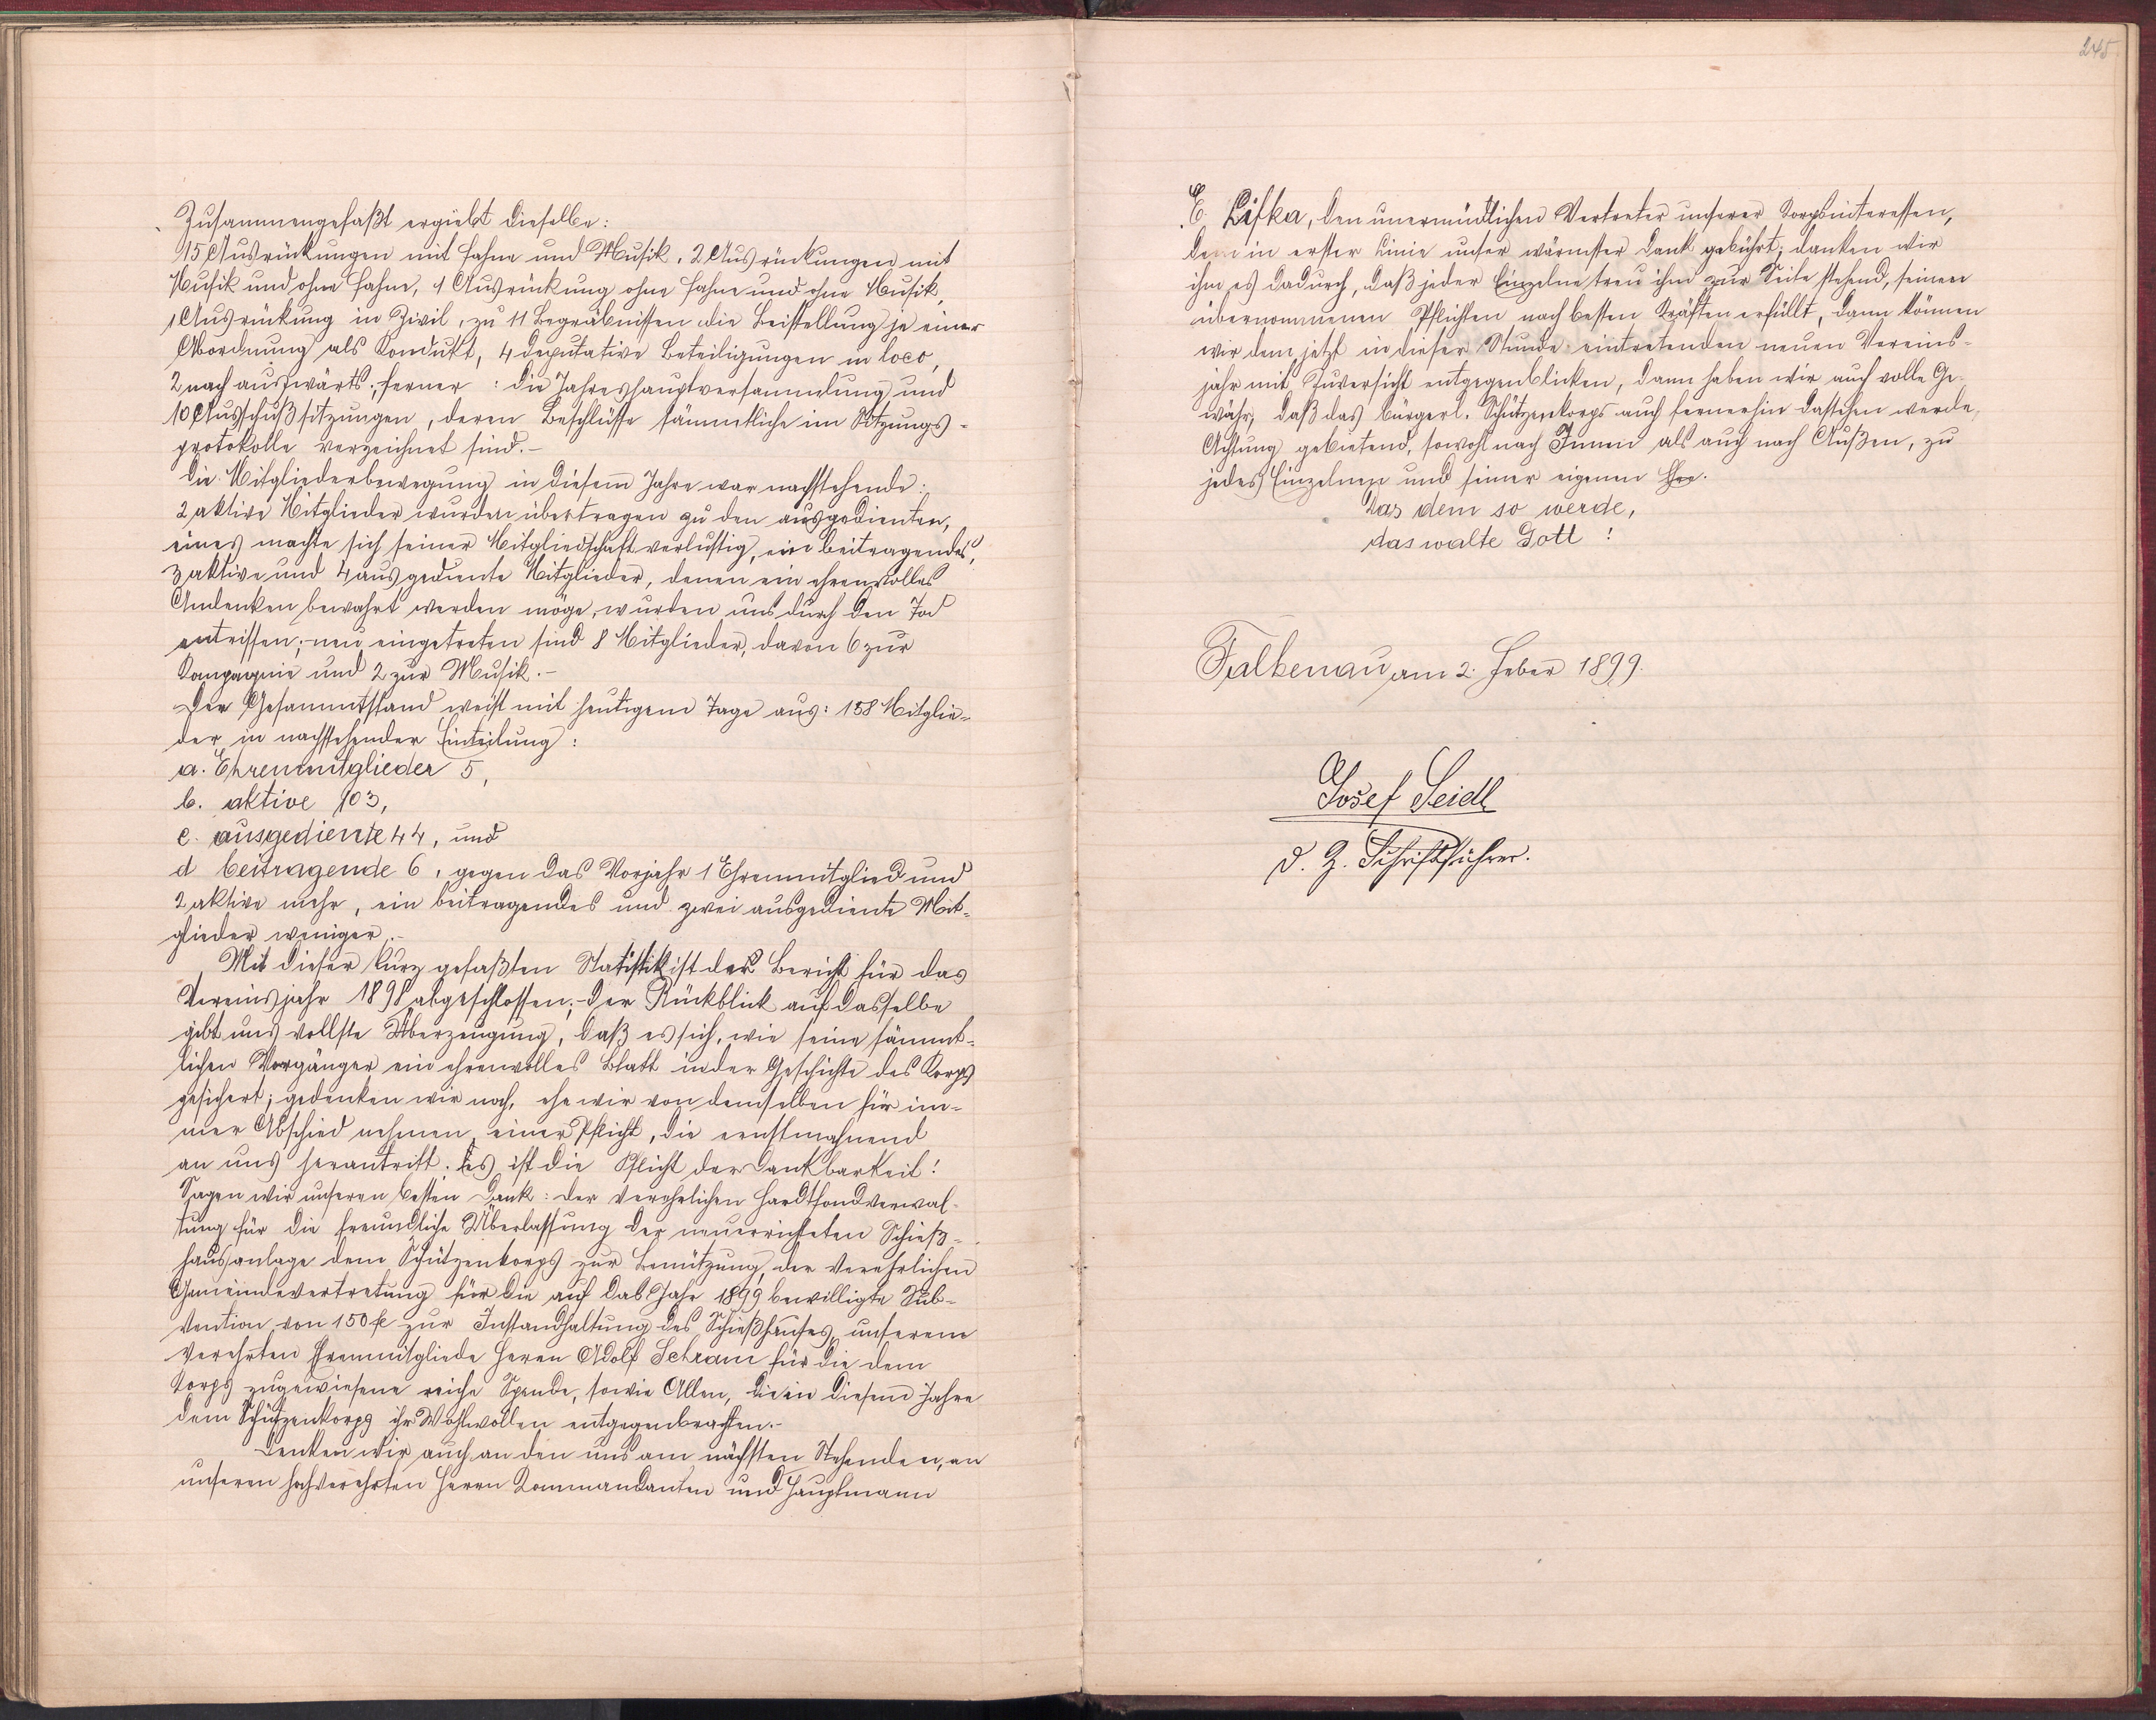 Zusammengefaßt ergiebt dieselbe:
15 Ausrückungen mit Fahne und Musik, 2 Ausrückungen mit
Musik und ohne Fahne, 1 Ausrückung ohne Fahne und ohne Musik,
1 Ausrückung in Zivil, zu 11 Begräbnissen die Beistellung je einer
Abordnung als Kondukt, 4 deputative Beteiligungen in loco,
2 nach auswärts; ferner: die Jahreshauptversammlung und
10 Ausschußsitzungen, deren Beschlüsse sämmtliche im Sitzungs-
protokolle verzeichnet sind.-
Die Mitgliederbewegung in diesem Jahre war nachstehende:
2 aktive Mitglieder wurden übertragen zu den ausgedienten,
eines machte sich seiner Mitgliedschaft verlustig, ein beitragendes,
3 aktive und 4 ausgediente Mitglieder, denen ein ehrenvolles
Andenken bewahrt werden möge, wurden uns durch den Tod
entrissen; neu eingetreten sind 8 Mitglieder, davon 6 zur
Kompagnie und 2 zur Musik.-
Der Gesammtstand weist mit heutigem Tage aus: 158 Mitglie-
der in nachstehender Einteilung:
a. Ehrenmitglieder 5,
b. aktive 103,
c. ausgediente 44, und
d beitragende 6, gegen das Vorjahr 1 Ehrenmitglied und
2 aktive mehr, ein beitragendes und zwei ausgediente Mit-
glieder weniger.-
Mit dieser kurz gefaßten Statistik ist der Bericht für das
Vereinsjahr 1898 abgeschlossen; der Rückblick auf dasselbe
gibt uns vollste Überzeugung, daß es sich, wie seine sämmt-
lichen Vorgänger ein ehrenvolles Blatt in der Geschichte des Korps
gesichert; gedenken wir noch, ehe wir von demselben für im-
mer Abschied nehmen, einer Pflicht, die ernstmahnend
an uns herantritt. Es ist die Pflicht der Dankbarkeit!
Sagen wir unseren besten Dank: der verehrlichen Hardtfondverwal-
tung für die freundliche Überlassung der neuerrichteten Schieß-
hausanlage dem Schützenkorps zur Benützung, der verehrlichen
Gemeindevertretung für die auf das Jahr 1899 bewilligte Sub-
vention von 150 fl zur Instandhaltung des Schießhauses, unserem
verehrten Ehrenmitgliede Herrn Adolf Schram für die dem
Korps zugewiesene reiche Spende, sowie Allen, die in diesem Jahre
dem Schützenkorps ihr Wohlwollen entgegenbrachten.-
Denken wir auch an den uns am nächsten Stehenden, an
unseren hochverehrten Herrn Kommandanten und Hauptmann
245
C. Lifka, den unermüdlichen Vertreter unserer Korpsinteressen,
dem in erster Linie unser wärmster Dank gebührt; danken wir
ihm es dadurch, daß jeder Einzelne treu ihm zur Seite stehend, seinen
übernommenen Pflichten nach besten Kräften erfüllt, dann können
wir dem jetzt in dieser Stunde eintretenden neuen Vereins-
jahr mit Zuversicht entgegenblicken, dann haben wir auch volle Ge-
währ, daß das bürgerl. Schützenkorps auch fernerhin dastehen werde,
Achtung gebietend, sowohl nach Innen als auch nach Außen, zu
jedes Einzelnen und seiner eigenen Ehre.
Das dem so werde,
das walte Gott!
Falkenau am 2. Feber 1899.
Josef Seidl
d. Z. Schriftführer.